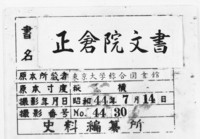 書名 正倉院文書
原本所蔵者 東京大学総合図書館
原本寸度 縦 横
撮影年月日 昭和44年7月14日
撮影番号 No. 44 30
史料編纂所